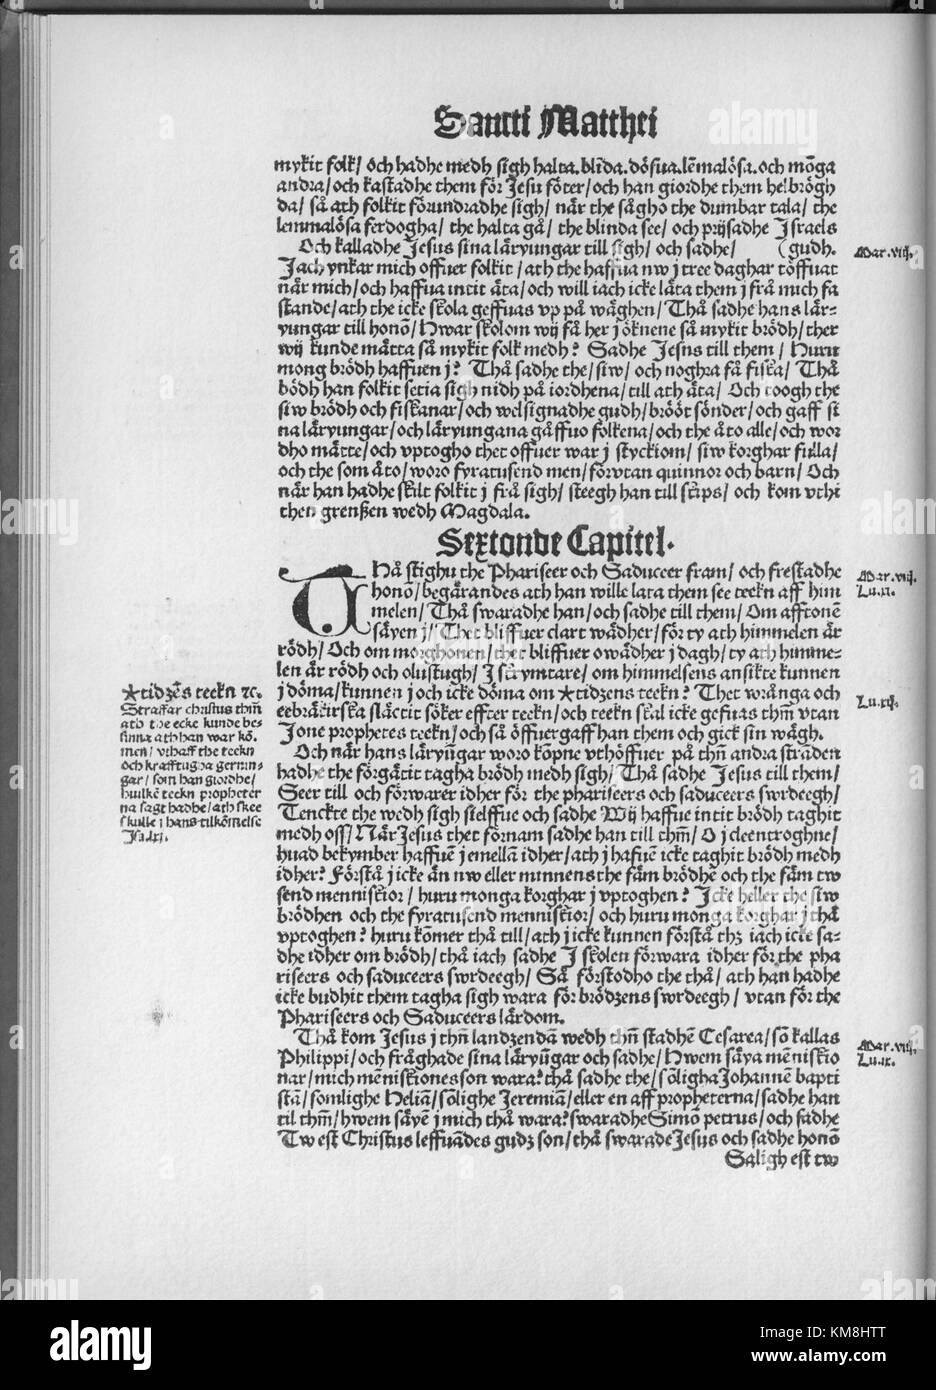 Sancti Matthei
mykit folk/ och hadhe medh sigh halta. blīda. döfua. lēmalösa. och mōga
andra/ och kastadhe them för Jesu föter/ och han giordhe them helbrögh
da/ så ath folkit förundradhe sigh/ når the sågho the dumbar tala/ the
lemmalösa ferdogha/ the halta gå/ the blinda see/ och prijsadhe Israels
Och kalladhe Jesus sina låryungar till sigh/ och sadhe/ (gudh.
Jach ynkar mich offuer folkit/ ath the haffua nw j tree daghar töffuat
når mich/ och haffua intit åta/ och will iach icke låta them j frå mich fa
stande/ ath the icke skola geffuas vp på wåghen/ Thå sadhe hans lår-
yungar till honō/ Hwar skolom wij få her j öknene så mykit brödh/ ther
wij kunde måtta så mykit folk medh? Sadhe Jesus till them/ Huru
mong brödh haffuen j? Thå sadhe the/ siw/ och noghra få fiska/ Thå
bödh han folkit setia sigh nidh på iordhena/ till ath åta/ Och toogh the
siw brödh och fiskanar/ och welsignadhe gudh/ brööt sönder/ och gaff si
na låryungar/ och låryungana gåffuo folkena/ och the åto alle/ och wor
dho måtte/ och vptogho thet offuer war j styckiom/ siw korghar fulla/
och the som åto/ woro fyratusend men/ förvtan quinnor och barn/ Och
når han hadhe skilt folkit j frå sigh/ steegh han till skips/ och kom vthi
then grenßen wedh Magdala.
Sextonde Capitel.
THå stighu the Phariseer och Saduceer fram/ och frestadhe
honō/ begårandes ath han wille lata them see teekn aff him
melen/ Thå swaradhe han/ och sadhe till them/ Om afftonē
såyen j/ Thet bliffuer clart wådher/ för ty ath himmelen år
rödh/ Och om morghonen/ thet bliffuer owådher j dagh/ ty ath himme-
len år rödh och olustugh/ J skrymtare/ om himmelsens ansikte kunnen
j döma/ kunnen j och icke döma om *tidzens teekn? Thet wrånga och
eebråkirska slåctit söker effter teekn/ och teekn skal icke gefuas thm̄ vtan
Jone prophetes teekn/ och så öffuergaff han them och gick sin wågh.
Och når hans låryūgar woro kōpne vthöffuer på thn̄ andra strāden
hadhe the förgåtit tagha brödh medh sigh/ Thå sadhe Jesus till them/
Seer till och förwarer idher för the phariseers och saduceers swrdeegh/
Tenckte the wedh sigh sielffue och sadhe Wij haffue intit brödh taghit
medh oss/ Når Jesus thet förnam sadhe han till thm̄/ O j cleentroghne/
huad bekymber haffuē j emellā idher/ ath j hafuē icke taghit brödh medh
idher? Förstå j icke ån nw eller minnens the fåm brödhē och the fåm tw
send menniskior/ huru monga korghar j vptoghen? Icke heller the siw
brödhen och the fyratusend menniskior/ och huru monga korghar j thå
vptoghen? huru kōmer thå till/ ath j icke kunnen förstå thz iach icke sa-
dhe idher om brödh/ thå iach sadhe J skolen förwara idher för the pha
riseers och saduceers swrdeegh/ Så förstodho the thå/ ath han hadhe
icke budhit them tagha sigh wara för brödzens swrdeegh/ vtan för the
Phariseers och Saduceers lårdom.
Thå kom Jesus j thn̄ landzendā wedh thn̄ stadhē Cesarea/ sō kallas
Philippi/ och fråghade sina låryūgar och sadhe/ Hwem såya mēniskio
nar/ mich mēniskiones son wara? thå sadhe the/ sōligha Johannē bapti
stā/ somlighe Heliā/ sōlighe Jeremiā/ eller en aff propheterna/ sadhe han
til thm̄/ hwem såyē j mich thå wara? swaradhe Simō petrus/ och sadhe
Tw est Christus leffuādes gudz son/ thå swarade Jesus och sadhe honō
Saligh est tw
Mar. viij.
Mar. viij.
Lu. xi.
Lu. xij.
Mar. viij.
Lu. ix.
*tidzēs teekn ⁊c.
Straffar christus thm̄
ath the ecke kunde be-
sinna ath han war kō.
men/ vthaff the teekn
och krafftugha gernin-
gar/ som han giordhe/
huilkē teekn propheter
na sagt hadhe/ ath skee
skulle j hans tilkōmelse
Jsa. lxj.
alamy
KM8HTT
www.alamy.com